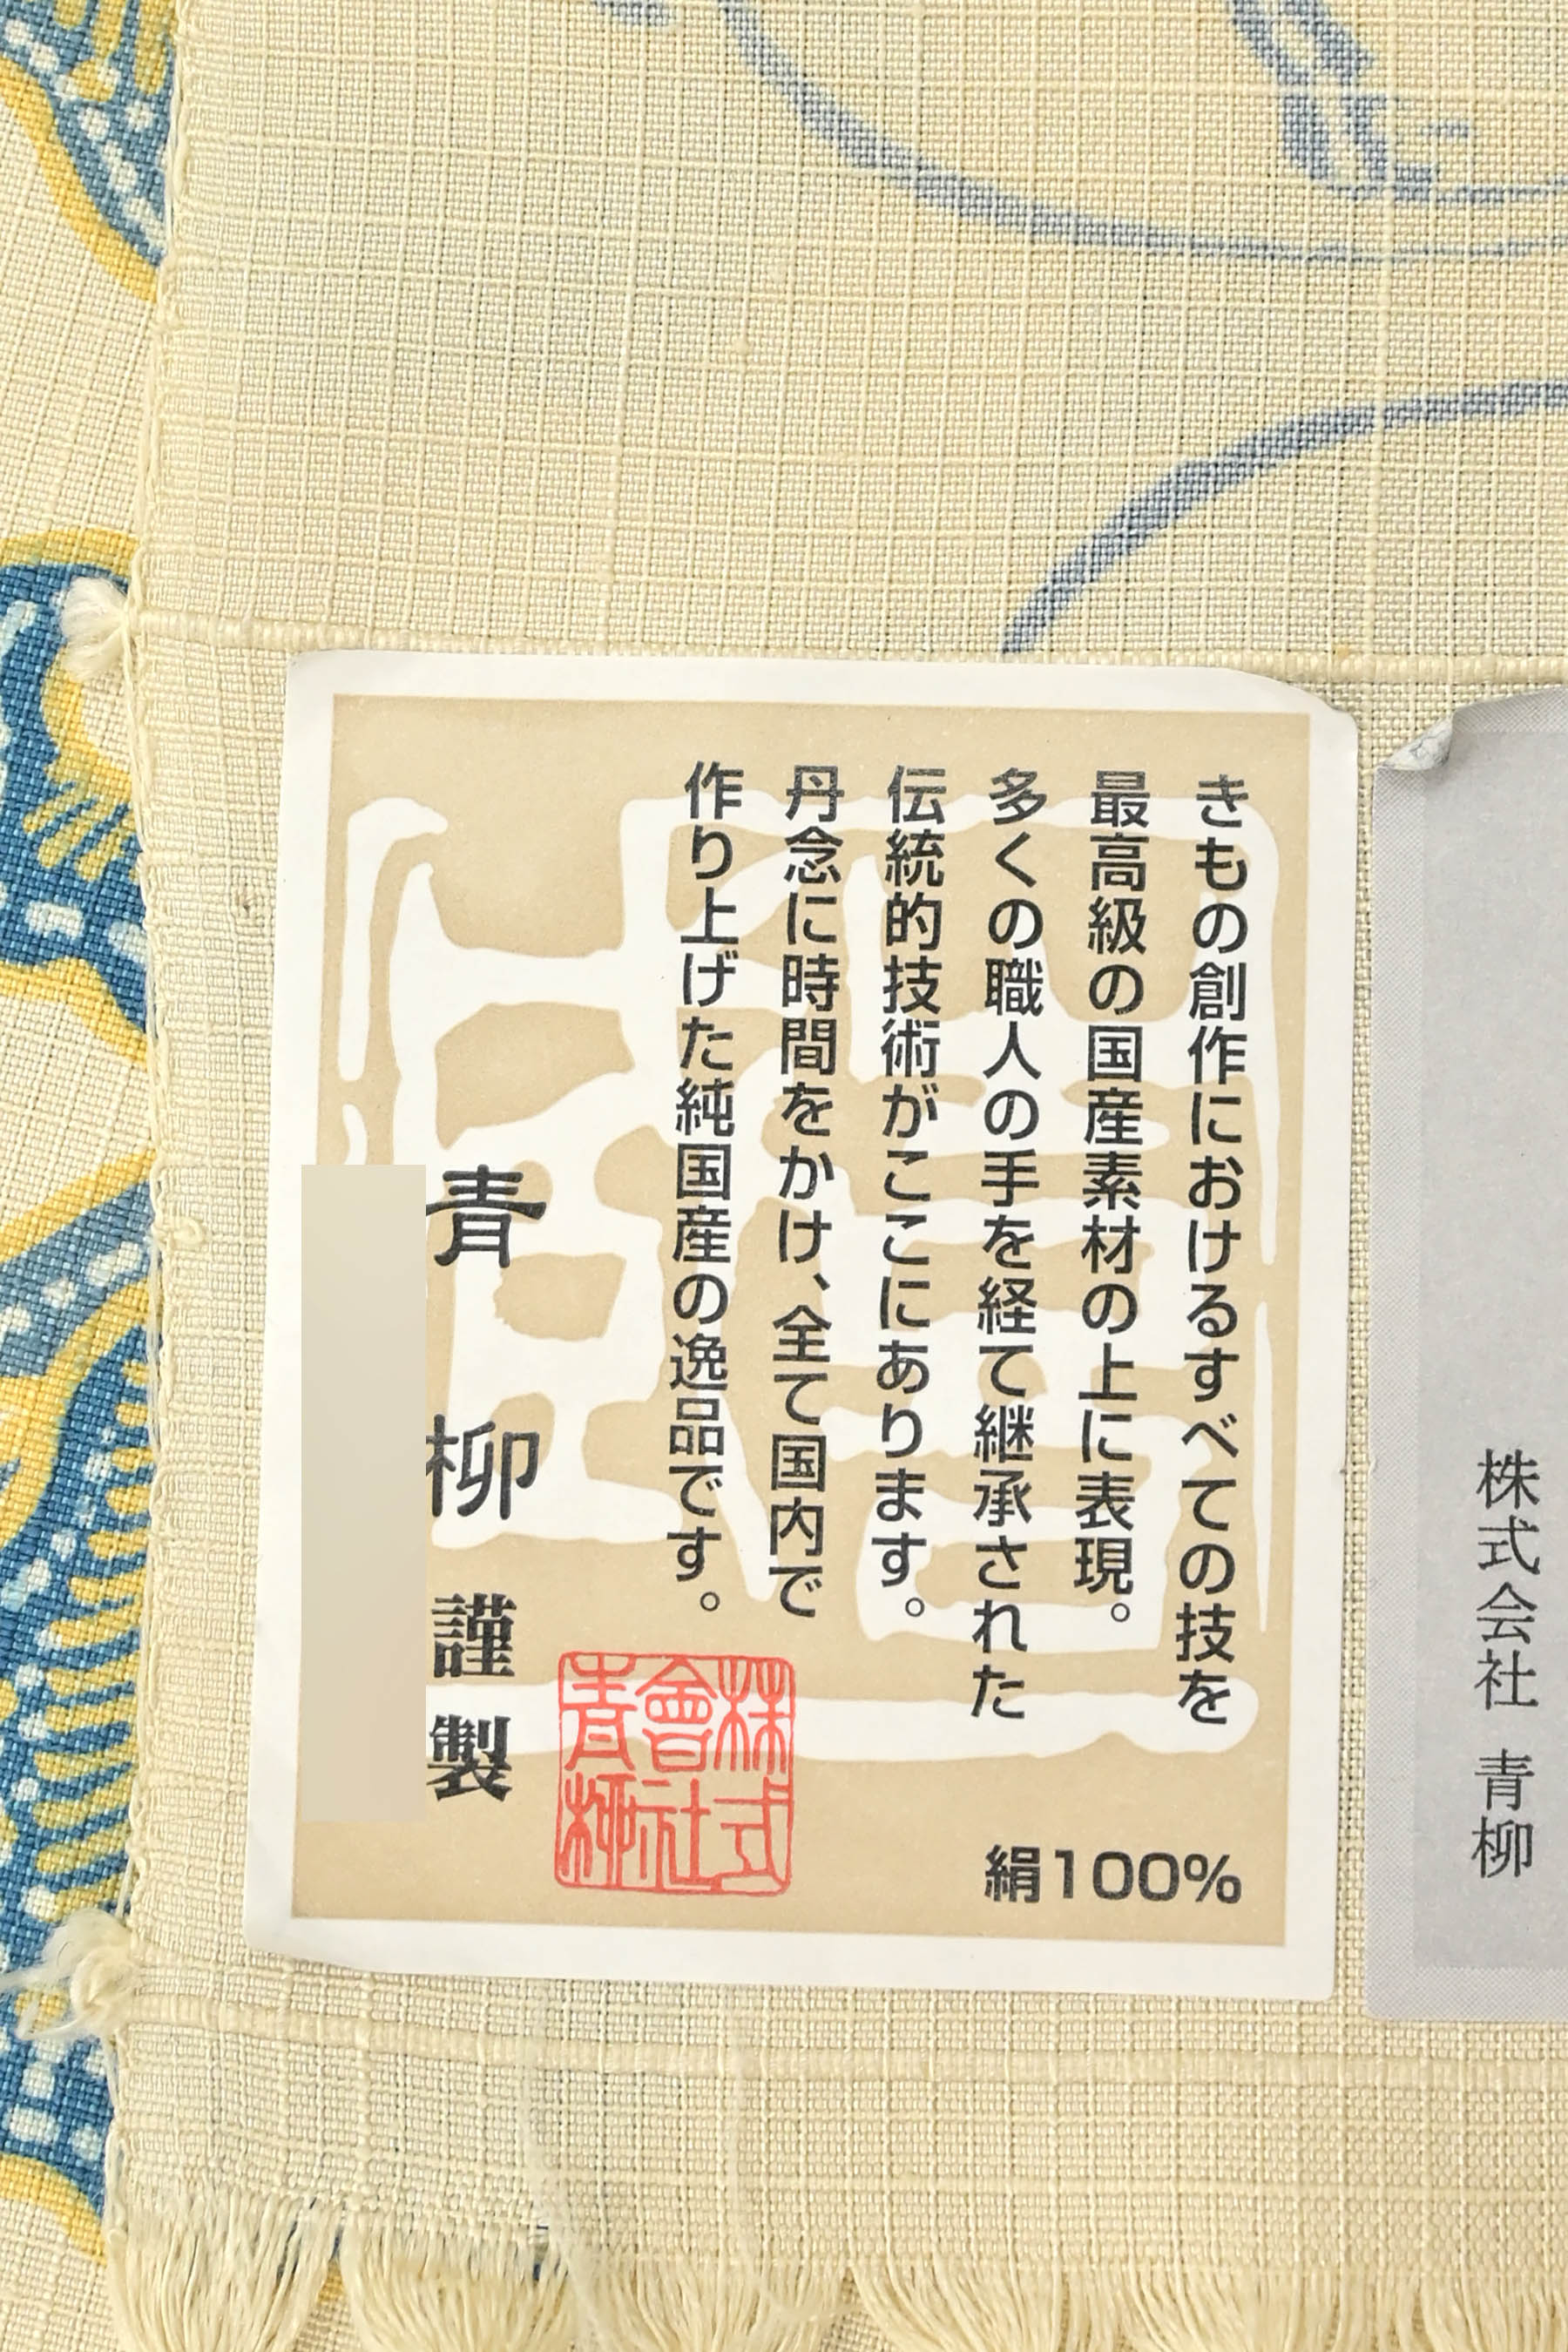 きもの創作におけるすべての技を
最高級の国産素材の上に表現。
多くの職人の手を経て継承された
伝統的技術がここにあります。
丹念に時間をかけ、全て国内で
作り上げた純国産の逸品です。
青柳謹製
株式
會社
青柳
絹100%
株式会社 青柳